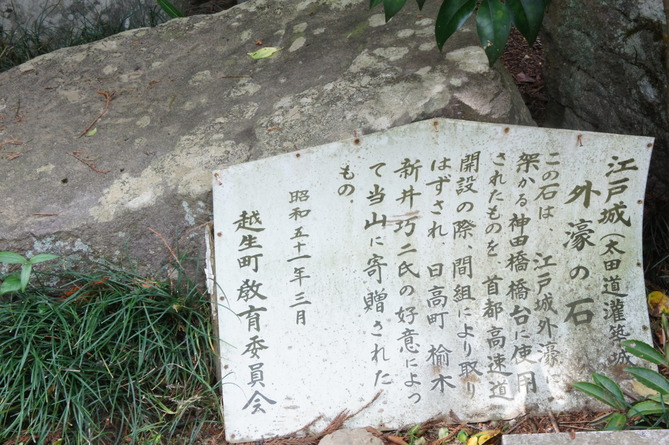 江戸城(太田道灌築城)
外濠の石
この石は、江戸城外濠に
架かる神田橋橋台に使用
されたものを首都高速道
開設の際、間組により取り
はずされ、日高町 楡木
新井巧二氏の好意によっ
て当山に寄贈された
もの。
昭和五十一年三月
越生町教育委員会